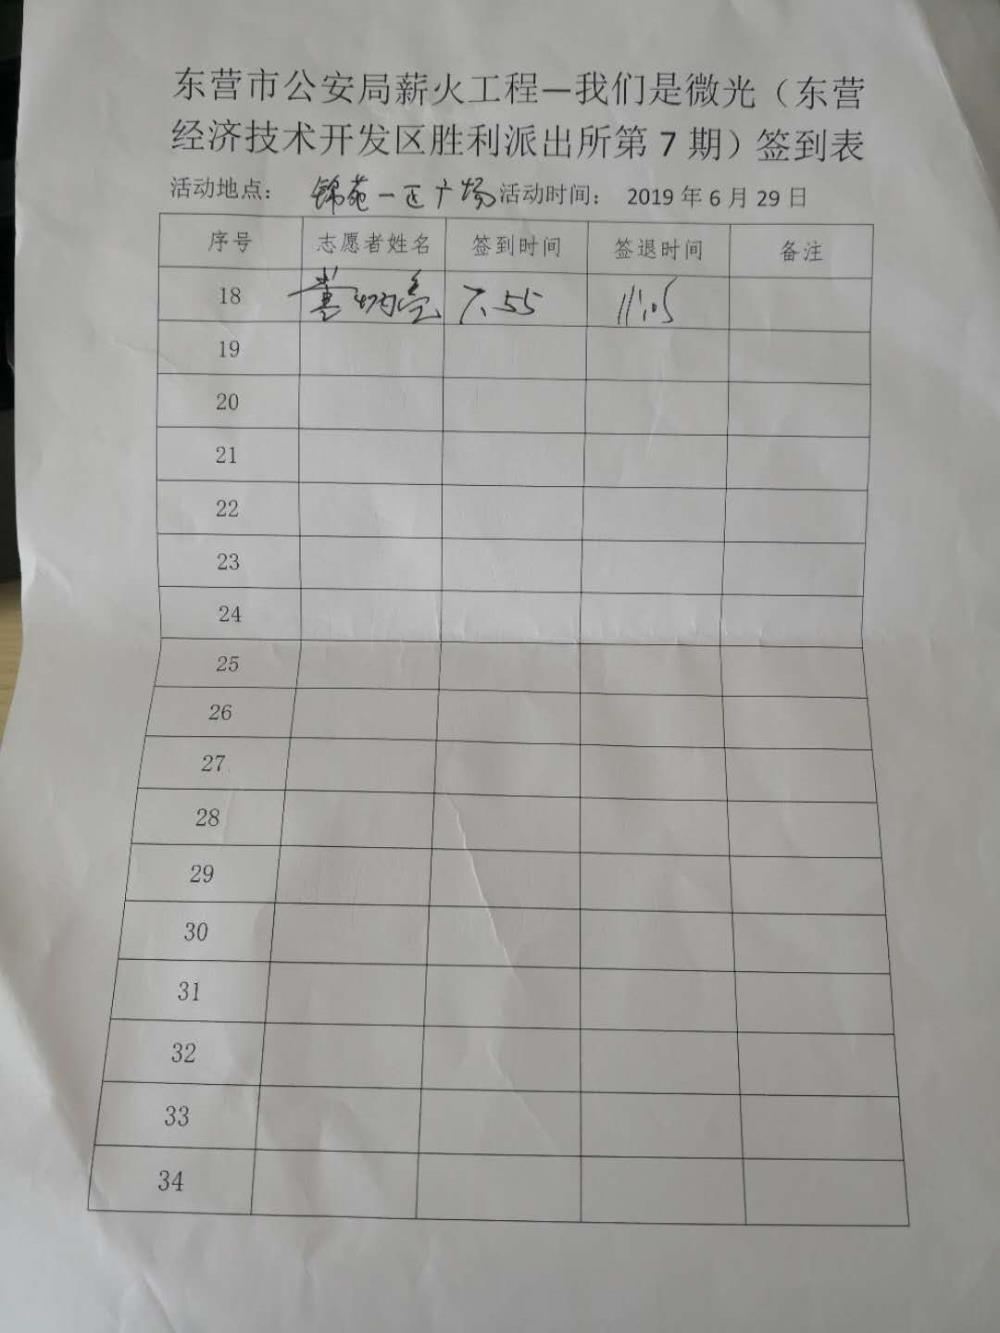 东营市公安局薪火工程—我们是微光（东营
经济技术开发区胜利派出所第 7 期）签到表
活动地点： 锦苑一区广场 活动时间： 2019 年 6 月 29 日
序号 志愿者姓名 签到时间 签退时间 备注
18 7.55 11:05
19
20
21
22
23
24
25
26
27
28
29
30
31
32
33
34